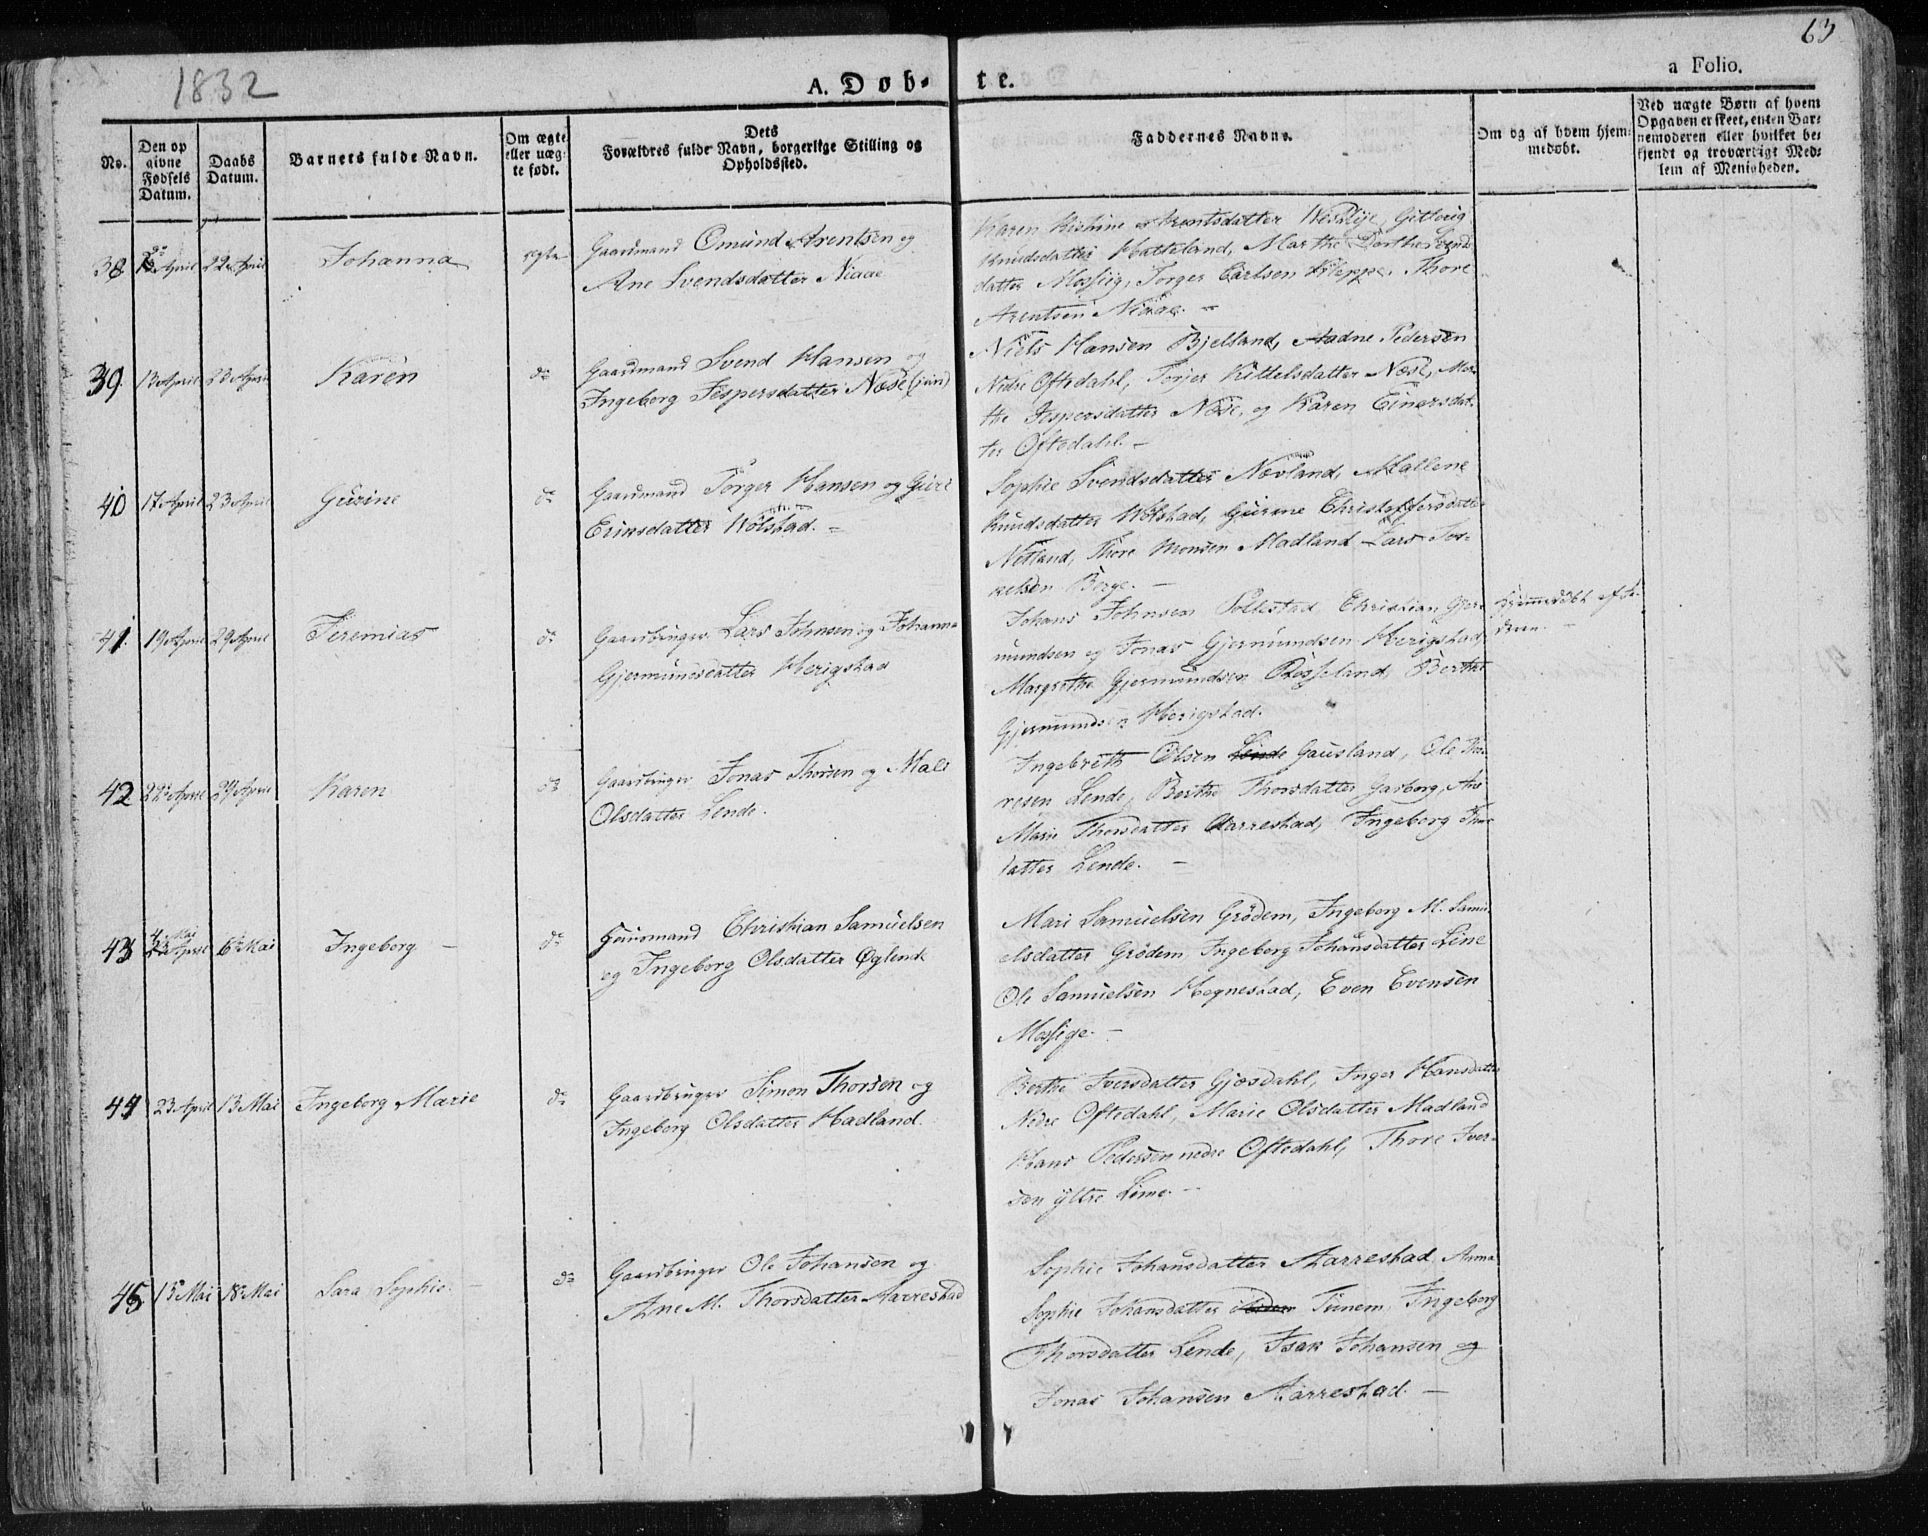 63
1832
A. Døb-
te.
a Folio.
No.
Den op
givne
Fødsels
Datum.
Daabs
Datum.
Barnets fulde Navn.
Om ægte
eller uæg-
te født.
Dets
Forældres fulde Navn, borgerlige Stilling og
Opholdssted.
Faddernes Navne.
Om og af hvem hjem-
medøbt.
Ved uægte Børn af hvem
Opgaven er skeet, enten Bar-
nemoderen eller hvilket be-
kjendt og troværdigt Med-
lem af Menigheden.
38 April 22 April Johanna ægte Gaardmand Omund Arentsen og
Ane Svendsdatter Niaae
Karen Kistine Arentsdatter Gitlerig
Knudsdatter Hatteland, Marthe Dorthe Svends
datter Mossiig, Torger Carlsen Kleppe, Thore
Arentsen Niaae. -
39. 13 April 23 April Karen do Gaardmand Svend Hansen og
Ingeborg Jespersdatter Næse (jun)
Niels Hansen Bjelland, Aadne Pedersen
Nedre Oftedahl, Torjer Kittelsdatter Næse, Mar-
the Jespersdatter Næse, og Karen Einarsdat-
ter Oftedahl. -
40 17 April 23 April Gurine do Gaardmand Torger Hansen og Guri
Eriksdatter Wolstad. -
Sophie Svendsdatter Nevland, Mallene
Knudsdatter Wolstad, Gurine Christophersdatter
Netland, Thore Monsen Madland Lars Tor-
kelsen Berge. -
41. 19 April 29 April Jeremias do Gaardbruger Lars Johnsen og Johanna
Gjermundsdatter Herigstad
Johans Johnsen Christian Gjer-
mundsen og Jonas Gjermundsen Herigstad,
Margrethe Gjermundsen Rosseland, Berthe
Gjermunds Herigstad.
hjemmedøbt af Fa-
deren. -
42 22 April 29 April Karen do Gaardbruger Jonas Thorsen og Male
Olsdatter Lende.
Ingebreth Olsen Lende Gausland, Ole Tho-
resen Lende, Berthe Thorsdatter Garborg, Ane
Marie Thorsdatter Aarrestad, Ingeborg Thors
datter Lende. -
43 4 Mai April 6 Mai Ingeborg - do Huusmand Christian Samuelsen
og Ingeborg Olsdatter Øglend
Mari Samuelsen Grødem, Ingeborg M. Samu-
elsdatter Grødem, Ingeborg Johansdatter Line
Ole Samuelsen Hognestad, Even Evensen
Mossige. -
44 23 April 13 Mai Ingeborg Marie do Gaardbruger Simon Thorsen og
Ingeborg Olsdatter Hadland.
Berthe Iversdatter Gjesdahl, Inger Hansdatter
Nedre Oftedahl, Marie Olsdatter Madland
Hans Pedersen nedre Oftedahl, Thore Iver-
sen Yttre Lime. -
45 13 Mai 18 Mai Sara Sophie. - do Gaardbruger Ole Johansen og
Ane M. Thorsdatter Aarrestad
Sophie Johansdatter Aarrestad Anna
Sophie Johansdatter Tunem, Ingeborg
Thorsdatter Lende, Isak Johansen og
Jonas Johansen Aarrestad. -